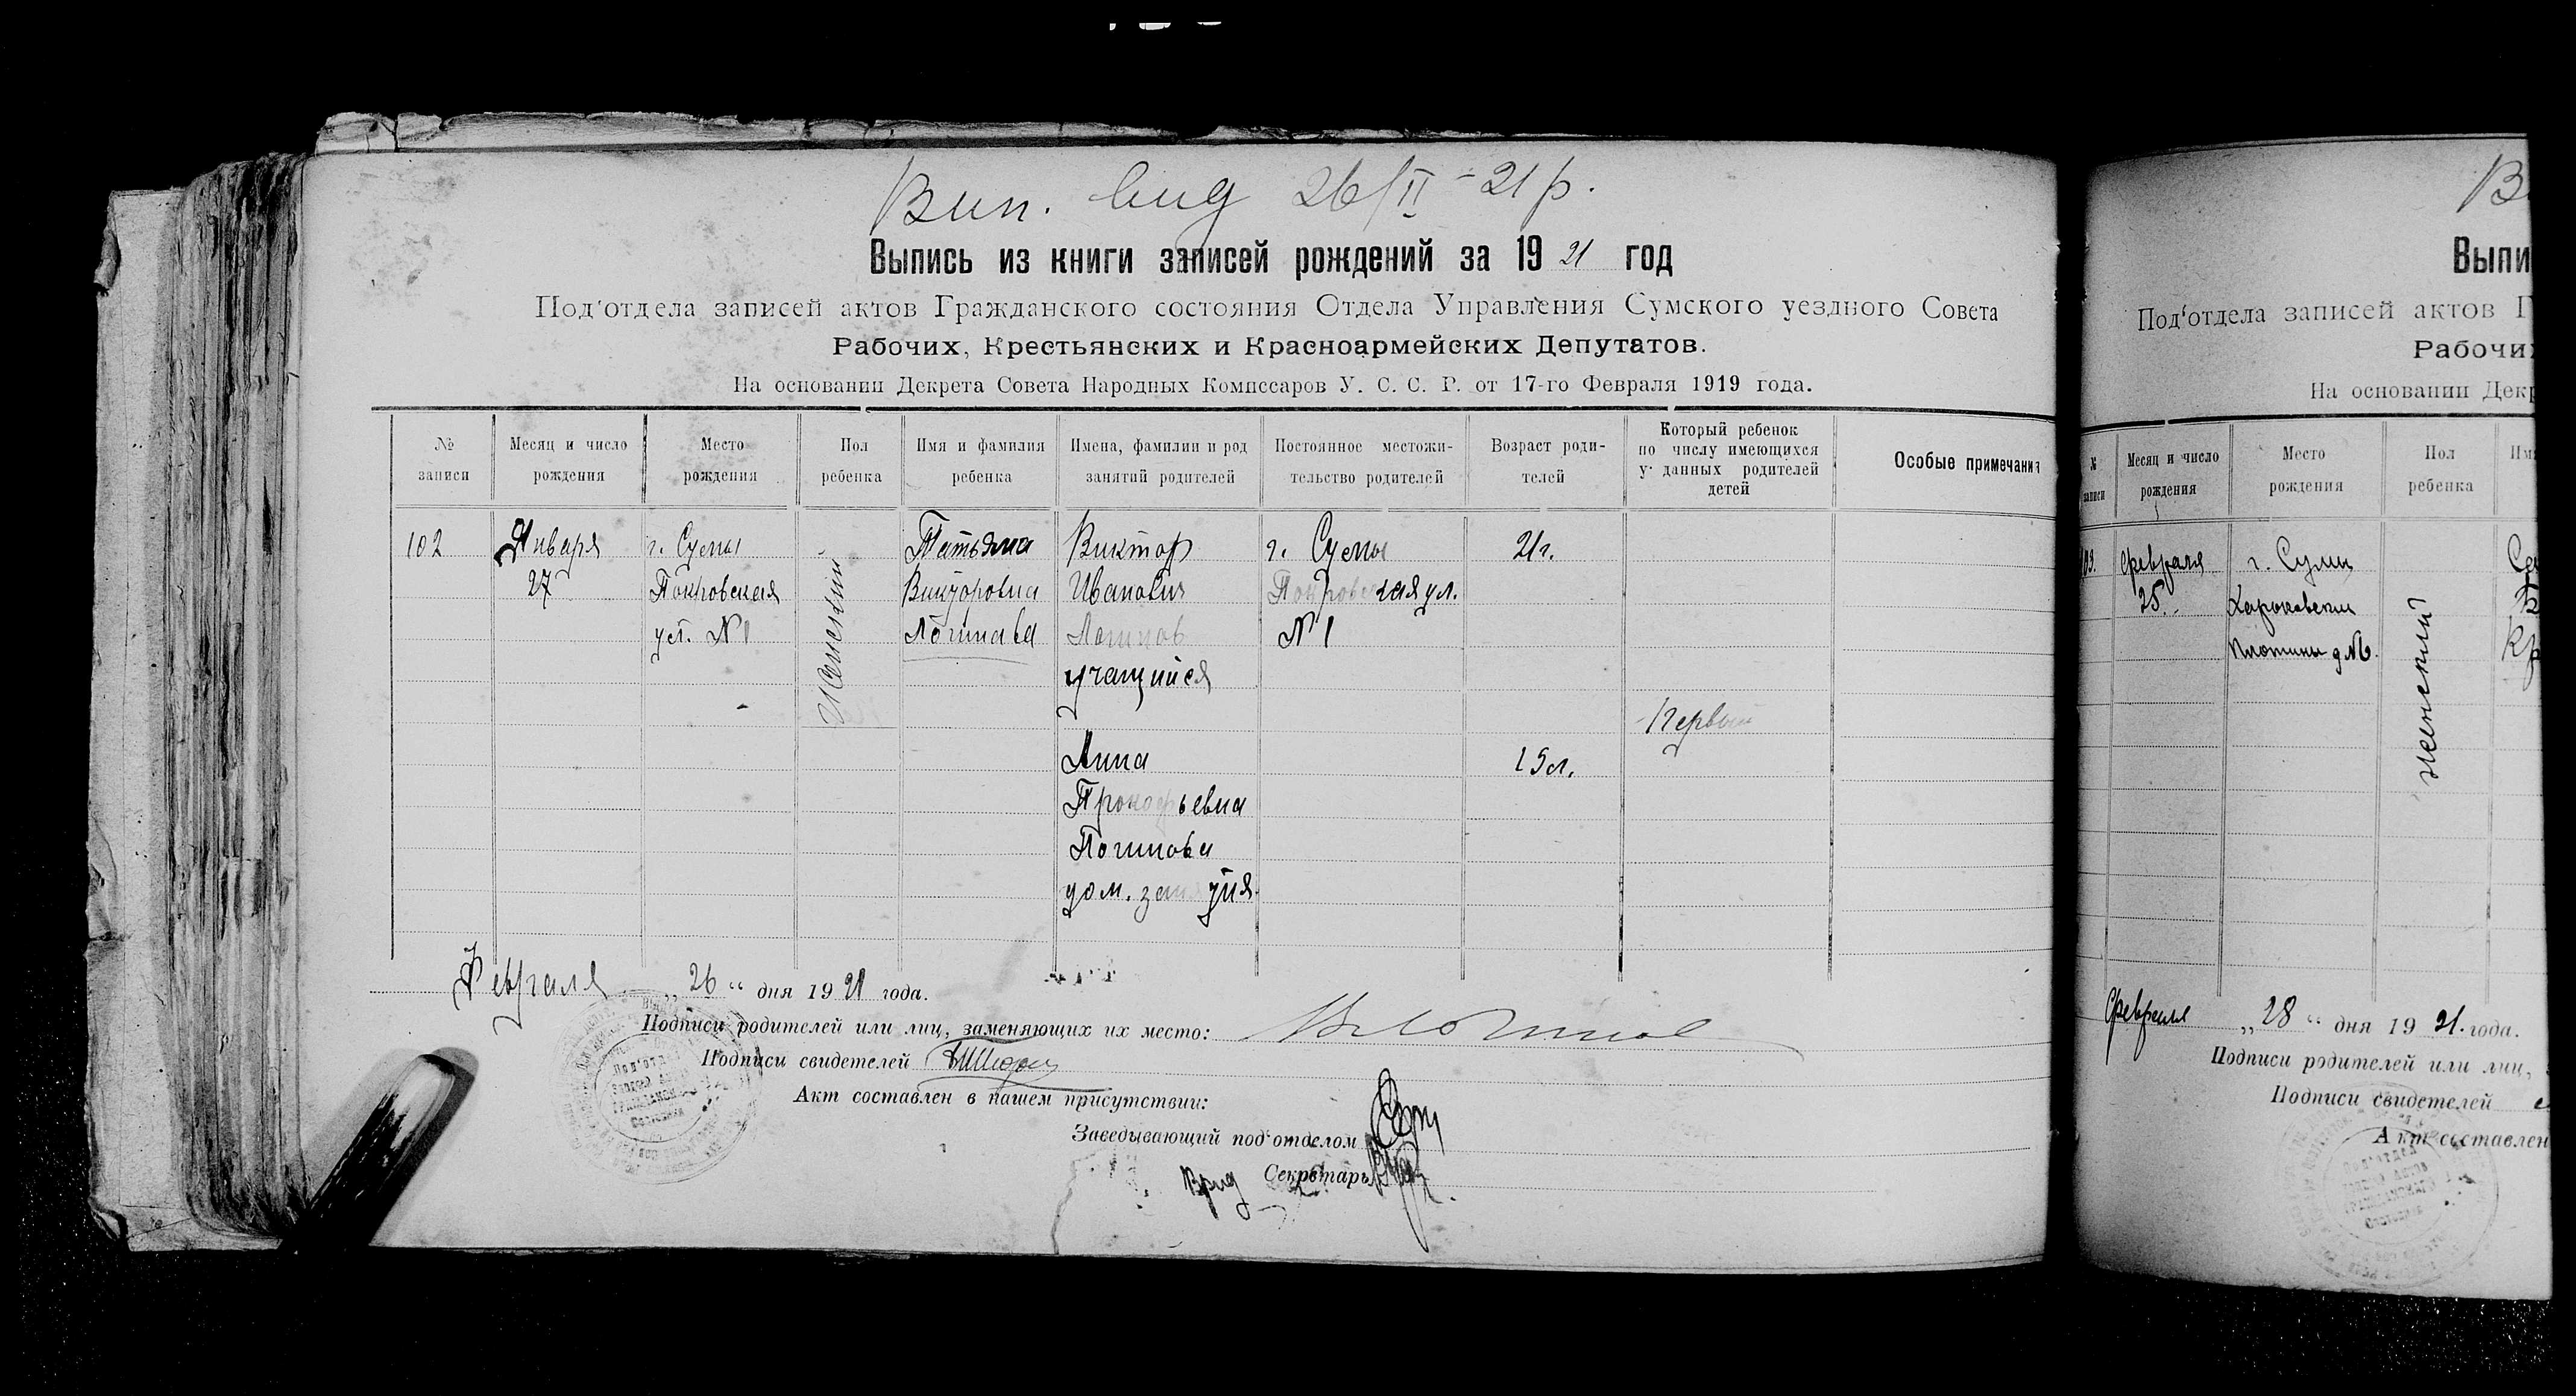 Вип. вид 26/II-21 р.
Выпись из книги записей рождений за 1921 год
Под'отдела записей актов Гражданского состояния Отдела Управления Сумского уездного Совета
Рабочих, Крестьянских и Красноармейских Депутатов.
На основании Декрета Совета Народных Комиссаров У. С. С. Р. от 17-го Февраля 1919 года.
№ записи
Месяц и число рождения
Место рождения
Пол ребенка
Имя и фамилия ребенка
Имена, фамилии и род занятий родителей
Постоянное местожительство родителей
Возраст родителей
Который ребенок по числу имеющихся у данных родителей детей
Особые примечания
102
Января
27
г. Сумы
Покровская
ул. № 1
Женский
Татьяна
Викторовна
Логинова
Виктор
Иванович
Логинов
учащийся
г. Сумы
Покровская ул.
№ 1
21 г.
Первый
Анна
Прокофьевна
Логинова
15 л.
Февраля „26“ дня 1921 года.
Подписи родителей или лиц, заменяющих их место: В Логинов
Подписи свидетелей
Акт составлен в нашем присутствии:
Заведывающий под'отделом
Врид Секретарь
Под'отдел
Записей Актов
Гражданского
Состояния
Выпи
Под'отдела записей актов Г
Рабочих
На основании Декр
№ записи
Месяц и число рождения
Место рождения
Пол ребенка
Имя
103.
февраля
25.
г. Сумы
Харьковская
женский
февраля „28“ дня 1921. года.
Подписи родителей или лиц,
Подписи свидетелей
Акт составлен
Под'отдел
Записей Актов
Гражданского
Состояния